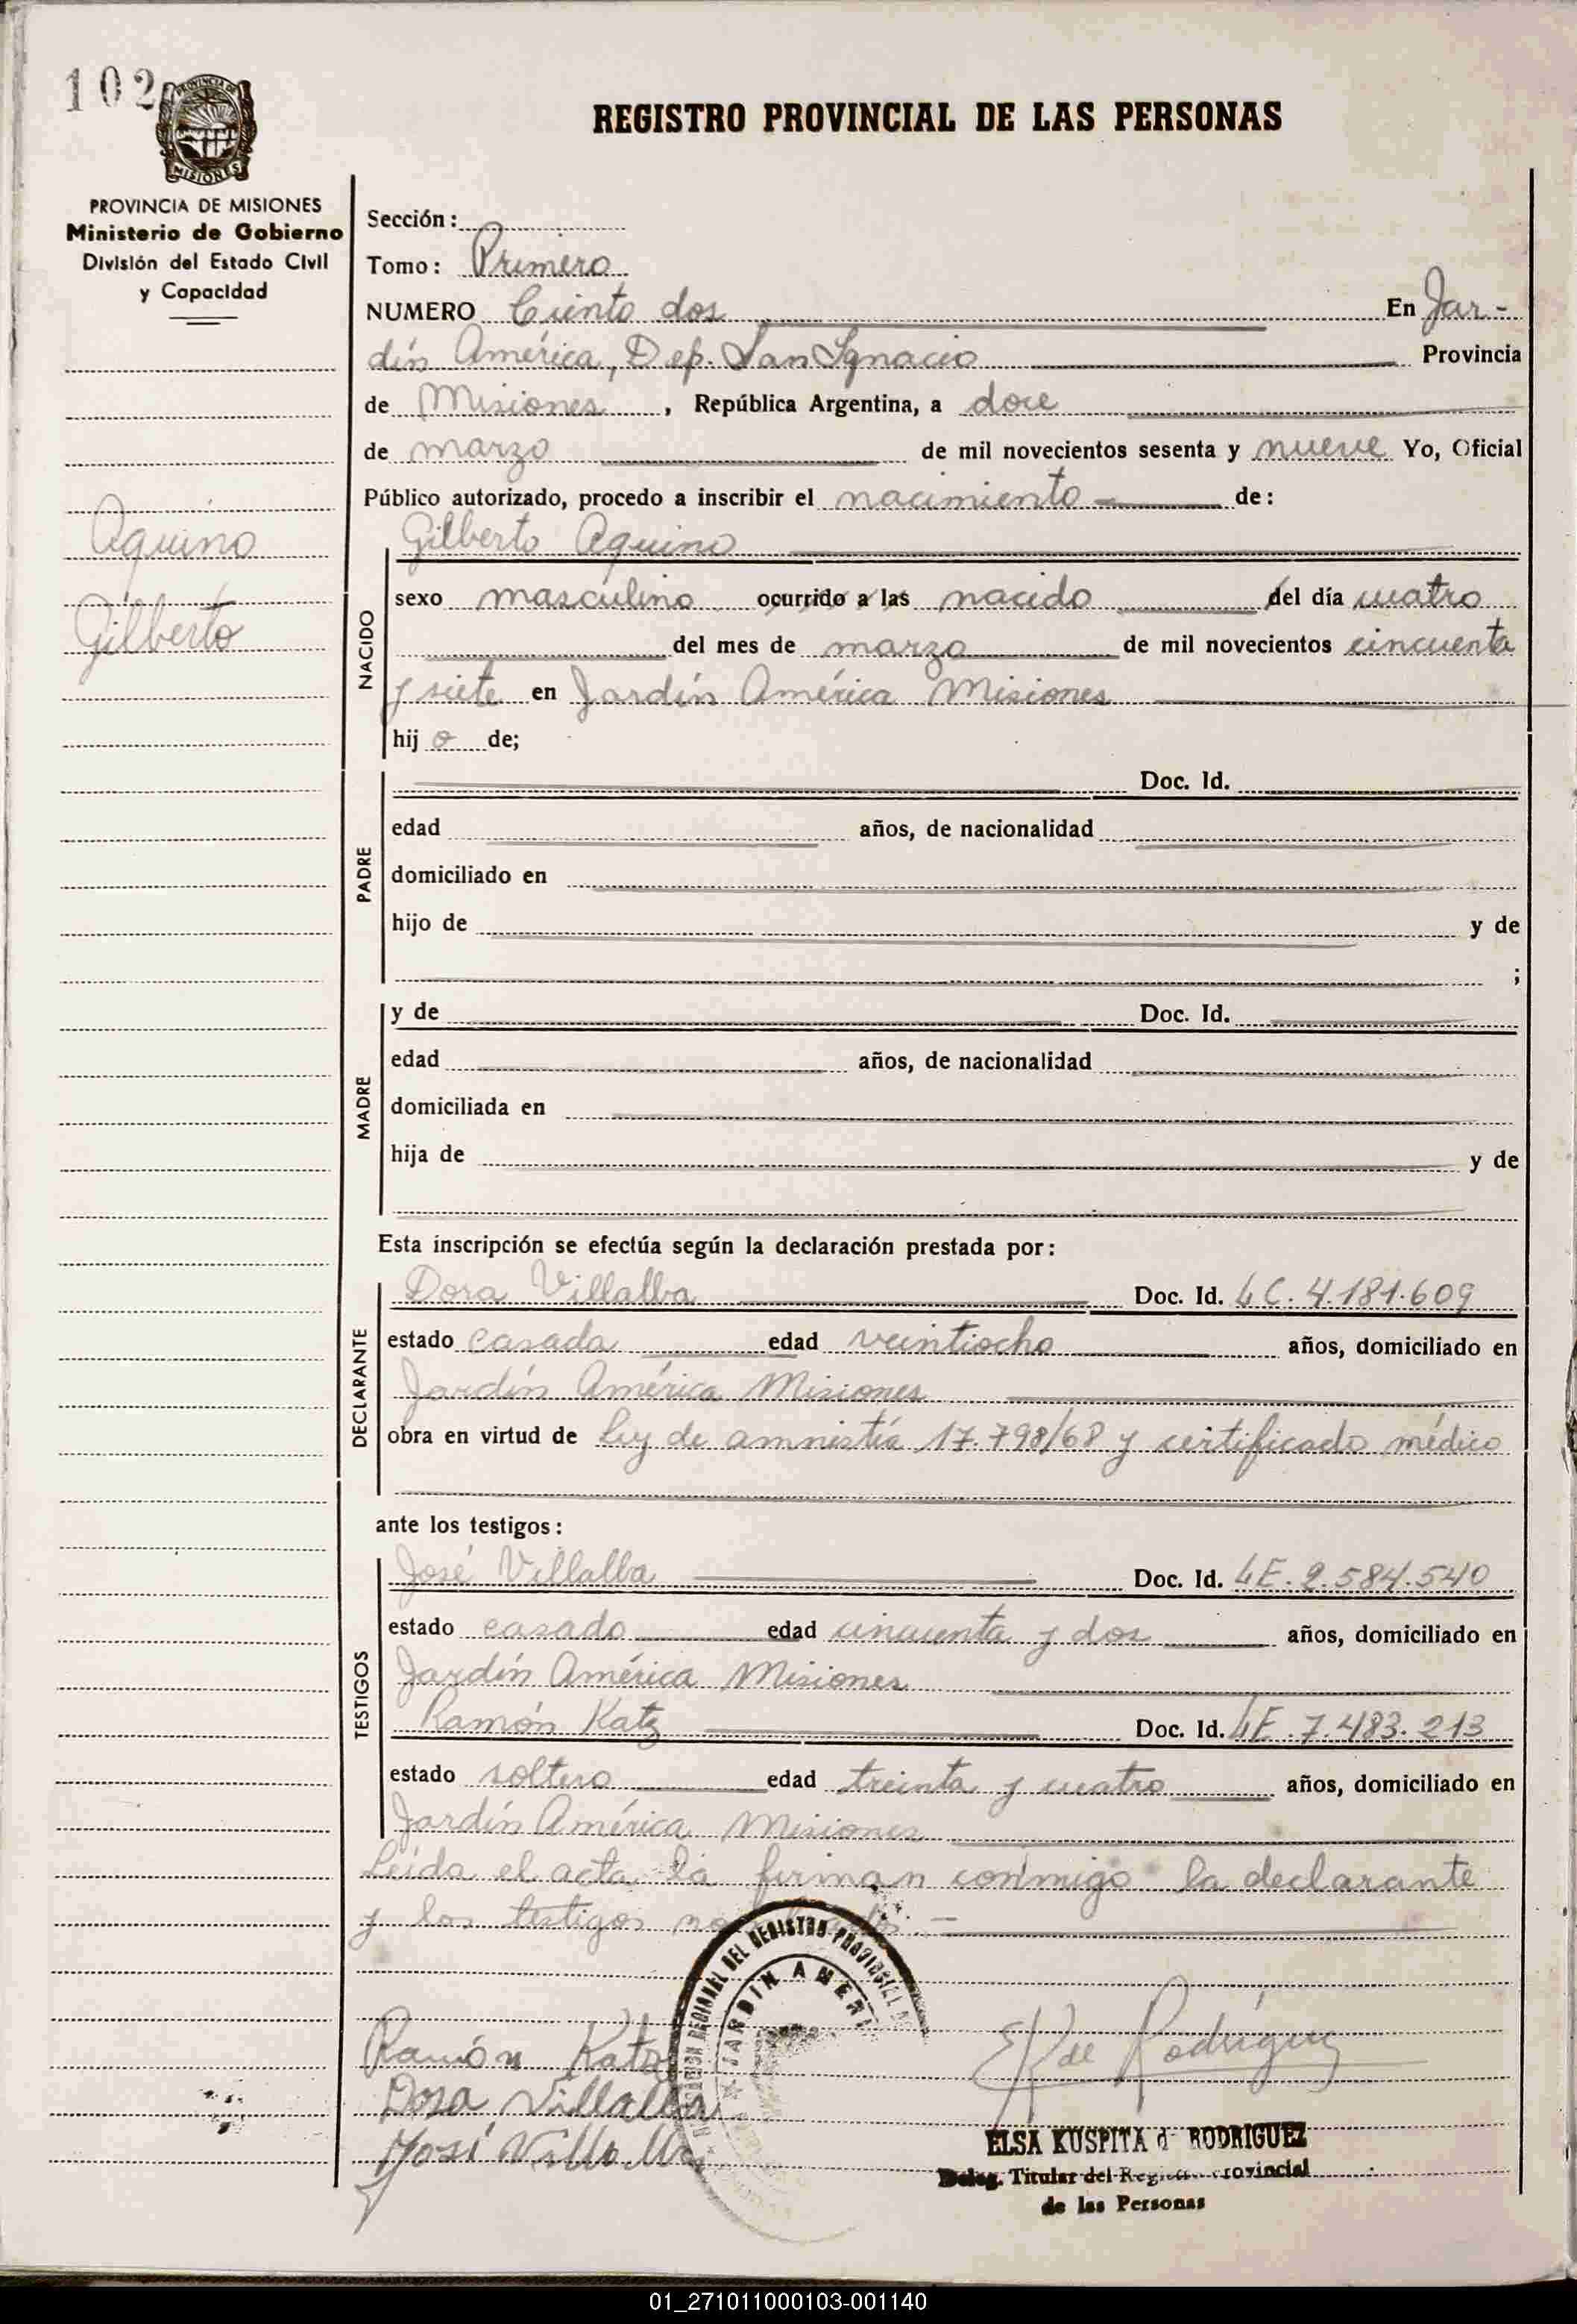 102
PROVINCIA DE
MISIONES
REGISTRO PROVINCIAL DE LAS PERSONAS
PROVINCIA DE MISIONES
Ministerio de Gobierno
División del Estado Civil
y Capacidad
Aquino
Gilberto
Sección:
Tomo: Primero
NUMERO Ciento dos En Jar-
dín América, Dep. San Ignacio Provincia
de Misiones, República Argentina, a doce
de marzo de mil novecientos sesenta y nueve Yo, Oficial
Público autorizado, procedo a inscribir el nacimiento de:
Gilberto Aquino
NACIDO
sexo masculino ocurrido a las nacido del día cuatro
del mes de marzo de mil novecientos cincuenta
y siete en Jardín América Misiones
hijo de;
PADRE
Doc. Id.
edad años, de nacionalidad
domiciliado en
hijo de y de
;
MADRE
y de Doc. Id.
edad años, de nacionalidad
domiciliada en
hija de y de
Esta inscripción se efectúa según la declaración prestada por:
DECLARANTE
Dora Villalba Doc. Id. LC. 4.181.609
estado casada edad veintiocho años, domiciliado en
Jardín América Misiones
obra en virtud de Ley de amnistía 17.798/68 y certificado médico
ante los testigos:
TESTIGOS
José Villalba Doc. Id. LE. 2.584.540
estado casado edad cincuenta y dos años, domiciliado en
Jardín América Misiones
Ramón Katz Doc. Id. LE. 7.483.213
estado soltero edad treinta y cuatro años, domiciliado en
Jardín América Misiones
Leída el acta la firman conmigo la declarante
y los testigos
REGIONAL DEL REGISTRO PROVINCIAL
JARDIN AMERI
Ramón Katz
Dora Villalba
José Villalba
E K de Rodríguez
ELSA KUSPITA d RODRIGUEZ
Deleg. Titular del Registro Provincial
de las Personas
01_271011000103-001140